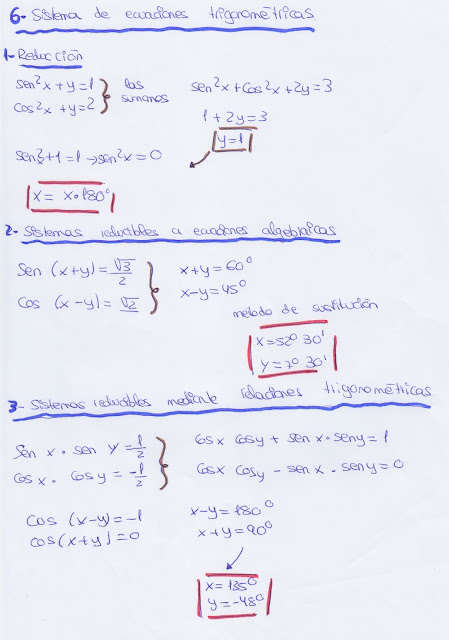 6- Sistema de ecuaciones trigonométricas.
1- Reducción
sen²x + y = 1
cos²x + y = 2
las sumamos
sen²x + cos²x + 2y = 3
1 + 2y = 3
y = 1
sen²x + 1 = 1 → sen²x = 0
x = x · 180°
2- Sistemas reducibles a ecuaciones algebraicas
Sen (x + y) = √3/2
Cos (x - y) = √2
x + y = 60°
x - y = 45°
método de sustitución
x = 52° 30'
y = 7° 30'
3- Sistemas reducibles mediante relaciones trigonométricas
Sen x · sen y = 1/2
Cos x · cos y = -1/2
Cosx cosy + senx · seny = 1
Cosx cosy - senx · seny = 0
Cos (x-y) = -1
cos (x+y) = 0
x - y = 180°
x + y = 90°
x = 135°
y = -48°